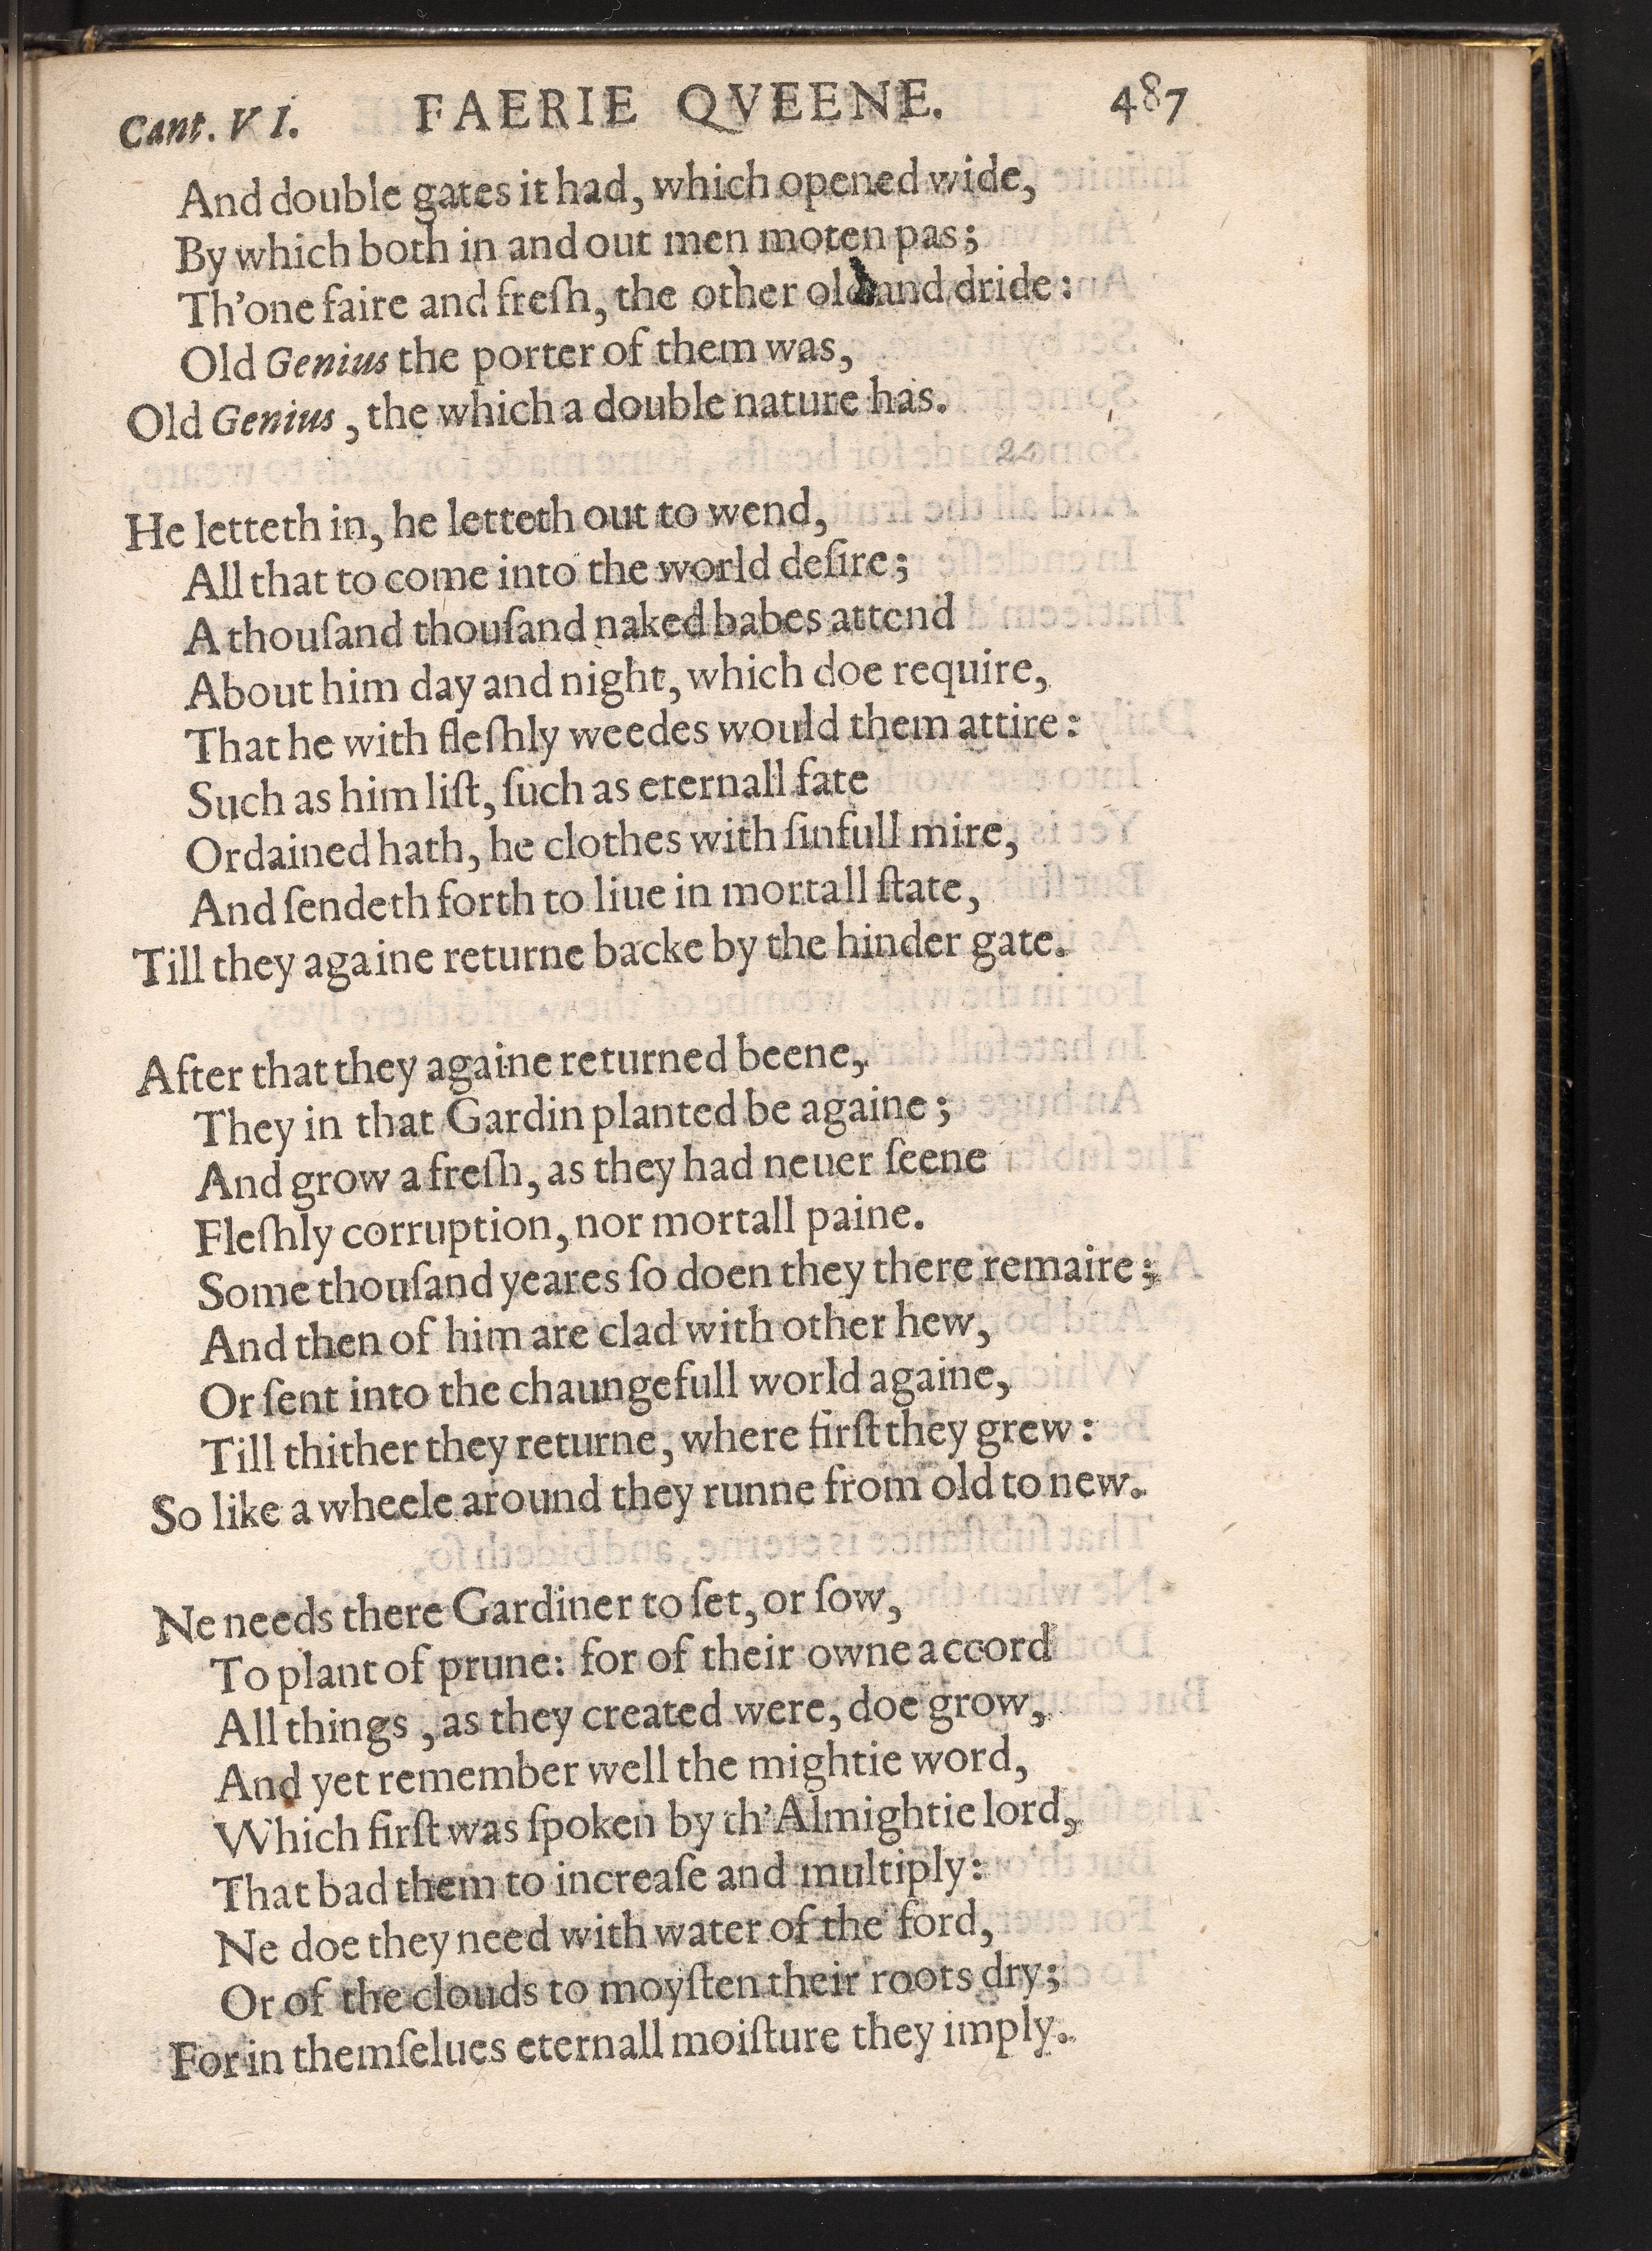 Cant. VI. FAERIE QVEENE. 487
And double gates it had, which opened wide,
By which both in and out men moten pas;
Th'one faire and freſh, the other old and dride:
Old Genius the porter of them was,
Old Genius, the which a double nature has.
He letteth in, he letteth out to wend,
All that to come into the world deſire;
A thouſand thouſand naked babes attend
About him day and night, which doe require,
That he with fleſhly weedes would them attire:
Such as him liſt, ſuch as eternall fate
Ordained hath, he clothes with ſinfull mire,
And ſendeth forth to liue in mortall ſtate,
Till they againe returne backe by the hinder gate.
After that they againe returned beene,
They in that Gardin planted be againe;
And grow afreſh, as they had neuer ſeene
Fleſhly corruption, nor mortall paine.
Some thouſand yeares ſo doen they there remaire;
And then of him are clad with other hew,
Or ſent into the chaungefull world againe,
Till thither they returne, where firſt they grew:
So like a wheele around they runne from old to new.
Ne needs there Gardiner to ſet, or ſow,
To plant of prune: for of their owne accord
All things, as they created were, doe grow,
And yet remember well the mightie word,
Which firſt was ſpoken by th'Almightie lord,
That bad them to increaſe and multiply:
Ne doe they need with water of the ford,
Or of the clouds to moyſten their roots dry;
For in themſelues eternall moiſture they imply.